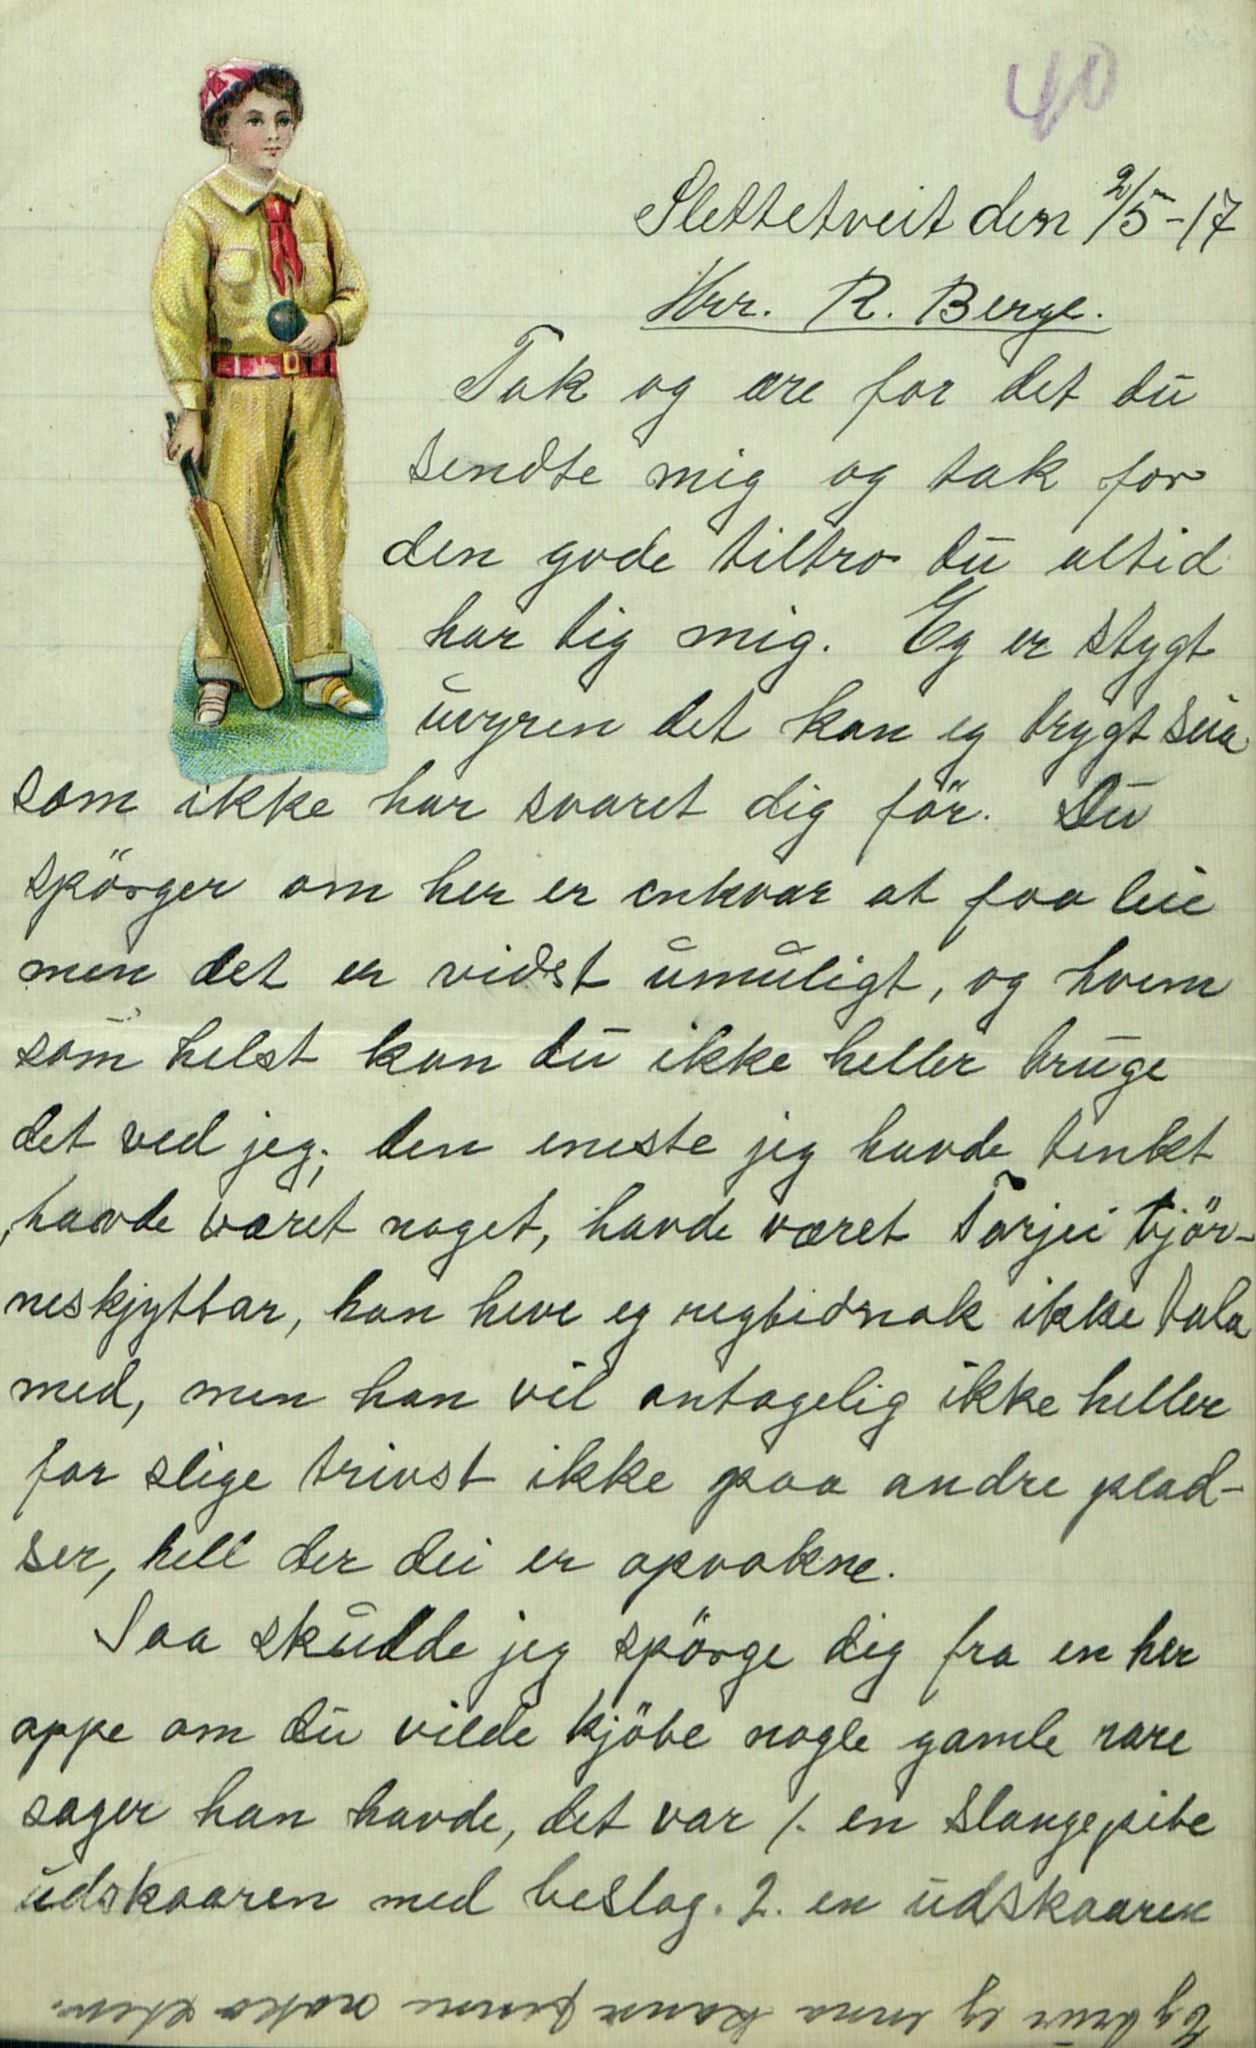 40
Slettetveit den 2/5-17
Hrr. R. Berge.
Tak og ære for det du
sendte mig og tak for
den gode tiltro du altid
har tig mig. Eg er stygt
uvyren det kan eg trygt seia
som ikke har svaret dig för. Du
spörger om her er enkvar at faa leie
men det er vidst umuligt, og hvem
som helst kan du ikke heller bruge
det ved jeg; den eneste jeg havde tenkt
havde været noget, havde været Tarjei björ-
neskjyttar, han heve eg regtidnok ikke tala
med, men han vil antagelig ikke heller
for slige trivst ikke paa andre plad-
ser, hell der dei er opvakne.
Saa skulde jeg spörge dig fra en her
oppe om du vilde kjöbe nogle gamle rare
sager han havde, det var 1. en slangepibe
udskaaren med beslag. 2. en udskaaren
Eg trur eg enna kann finne noko